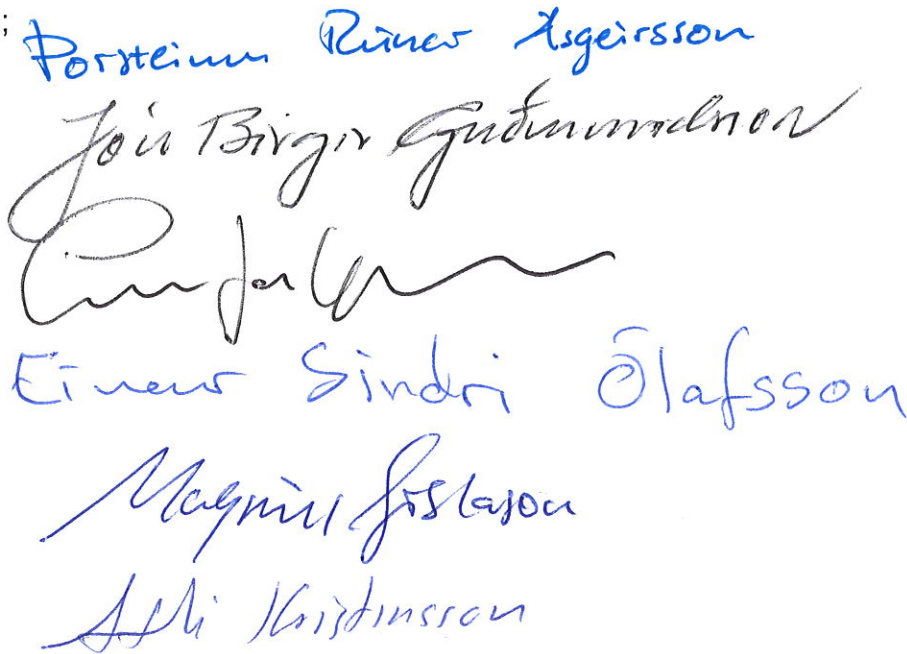 ;
Þorsteinn Rúnar Ásgeirsson
Jón Birgir Guðmundsson
Einar Sindri Ólafsson
Magnús Gíslason
Atli Kristinsson